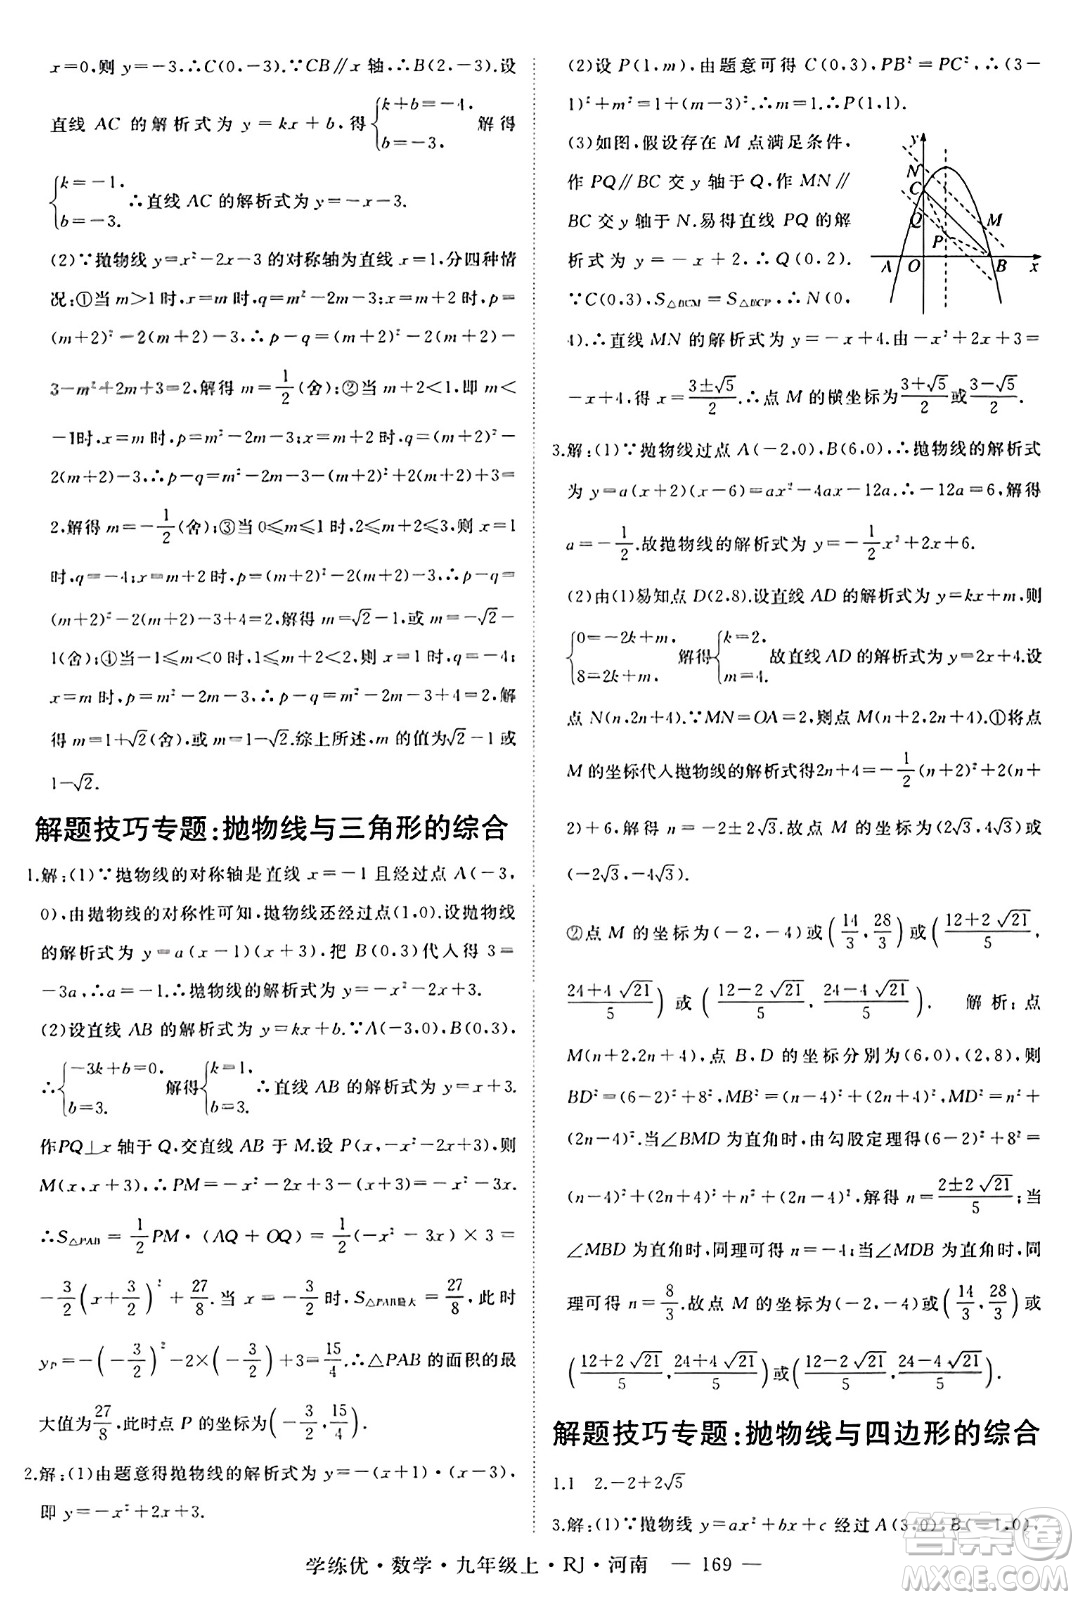 x=0,则 y=-3.∴C(0,-3).∵CB∥x 轴,∴B(2,-3).设
直线 AC 的解析式为 y=kx+b,得{k+b=-4, b=-3. 解得
{k=-1, b=-3. ∴直线 AC 的解析式为 y=-x-3.
(2)∵抛物线 y=x²-2x-3 的对称轴为直线 x=1,分四种情
况:①当 m>1 时,x=m 时,q=m²-2m-3;x=m+2 时,p=
(m+2)²-2(m+2)-3.∴p-q=(m+2)²-2(m+2)-
3-m²+2m+3=2,解得 m=1/2(舍);②当 m+2<1,即 m<
-1时,x=m 时,p=m²-2m-3;x=m+2 时,q=(m+2)²-
2(m+2)-3.∴p-q=m²-2m-3-(m+2)²+2(m+2)+3=
2,解得 m=-1/2(舍);③当 0≤m≤1 时,2≤m+2≤3,则 x=1
时,q=-4;x=m+2 时,p=(m+2)²-2(m+2)-3.∴p-q=
(m+2)²-2(m+2)-3+4=2,解得 m=√2-1 或 m=-√2-
1(舍);④当-1≤m<0 时,1≤m+2<2,则 x=1 时,q=-4;
x=m 时,p=m²-2m-3.∴p-q=m²-2m-3+4=2,解
得 m=1+√2(舍),或 m=1-√2.综上所述,m 的值为√2-1或
1-√2.
解题技巧专题:抛物线与三角形的综合
1.解:(1)∵抛物线的对称轴是直线 x=-1 且经过点 A(-3,
0),由抛物线的对称性可知,抛物线还经过点(1,0).设抛物线
的解析式为 y=a(x-1)(x+3).把 B(0,3)代人得 3=
-3a,∴a=-1.∴抛物线的解析式为 y=-x²-2x+3.
(2)设直线 AB 的解析式为 y=kx+b.∵A(-3,0),B(0,3),
∴{-3k+b=0, b=3. 解得{k=1, b=3. ∴直线 AB 的解析式为 y=x+3.
作PQ⊥x 轴于 Q,交直线 AB 于 M.设 P(x,-x²-2x+3),则
M(x,x+3),∴PM=-x²-2x+3-(x+3)=-x²-3x.
∴S△PAB=1/2PM·(AQ+OQ)=1/2(-x²-3x)×3=
-3/2(x+3/2)²+27/8.当 x=-3/2 时,S△PAB最大=27/8,此时
yP=-(-3/2)²-2×(-3/2)+3=15/4.∴△PAB 的面积的最
大值为27/8,此时点 P 的坐标为(-3/2,15/4).
2.解:(1)由题意得抛物线的解析式为 y=-(x+1)·(x-3),
即 y=-x²+2x+3.
(2)设 P(1,m),由题意可得 C(0,3),PB²=PC²,∴(3-
1)²+m²=1+(m-3)².∴m=1.∴P(1,1).
(3)如图,假设存在 M 点满足条件,
作 PQ∥BC 交 y轴于 Q,作 MN∥
BC 交 y 轴于 N.易得直线 PQ 的解
析式为 y=-x+2,∴Q(0,2).
∵C(0,3),S△BCM=S△BCP,∴N(0,
4).∴直线 MN 的解析式为 y=-x+4.由-x²+2x+3=
-x+4,得 x=(3±√5)/2.∴点 M 的横坐标为(3+√5)/2或(3-√5)/2.
y
N
C
Q
M
P
A
O
B
x
3.解:(1)∵抛物线过点 A(-2,0),B(6,0),∴抛物线的解析式
为 y=a(x+2)(x-6)=ax²-4ax-12a.∴-12a=6,解得
a=-1/2.故抛物线的解析式为 y=-1/2x²+2x+6.
(2)由(1)易知点 D(2,8).设直线 AD 的解析式为 y=kx+m,则
{0=-2k+m, 8=2k+m. 解得{k=2, m=4. 故直线 AD 的解析式为 y=2x+4.设
点 N(n,2n+4).∵MN=OA=2,则点 M(n+2,2n+4).①将点
M 的坐标代人抛物线的解析式得2n+4=-1/2(n+2)²+2(n+
2)+6,解得 n=-2±2√3.故点 M 的坐标为(2√3,4√3)或
(-2√3,-4√3).
②点 M 的坐标为(-2,-4)或(14/3,28/3)或((12+2√21)/5,
(24+4√21)/5)或((12-2√21)/5,(24-4√21)/5). 解析:点
M(n+2,2n+4),点 B,D 的坐标分别为(6,0),(2,8),则
BD²=(6-2)²+8²,MB²=(n-4)²+(2n+4)²,MD²=n²+
(2n-4)².当∠BMD 为直角时,由勾股定理得(6-2)²+8²=
(n-4)²+(2n+4)²+n²+(2n-4)²,解得 n=(2±2√21)/5;当
∠MBD 为直角时,同理可得 n=-4;当∠MDB 为直角时,同
理可得 n=8/3.故点 M 的坐标为(-2,-4)或(14/3,28/3)或
((12+2√21)/5,(24+4√21)/5)或((12-2√21)/5,(24-4√21)/5).
解题技巧专题:抛物线与四边形的综合
1.1 2.-2+2√5
3.解:(1)∵抛物线 y=ax²+bx+c 经过 A(3,0),B(-1,0),
学练优·数学·九年级上·RJ·河南 — 169 —
答案圈
MXQE.COM